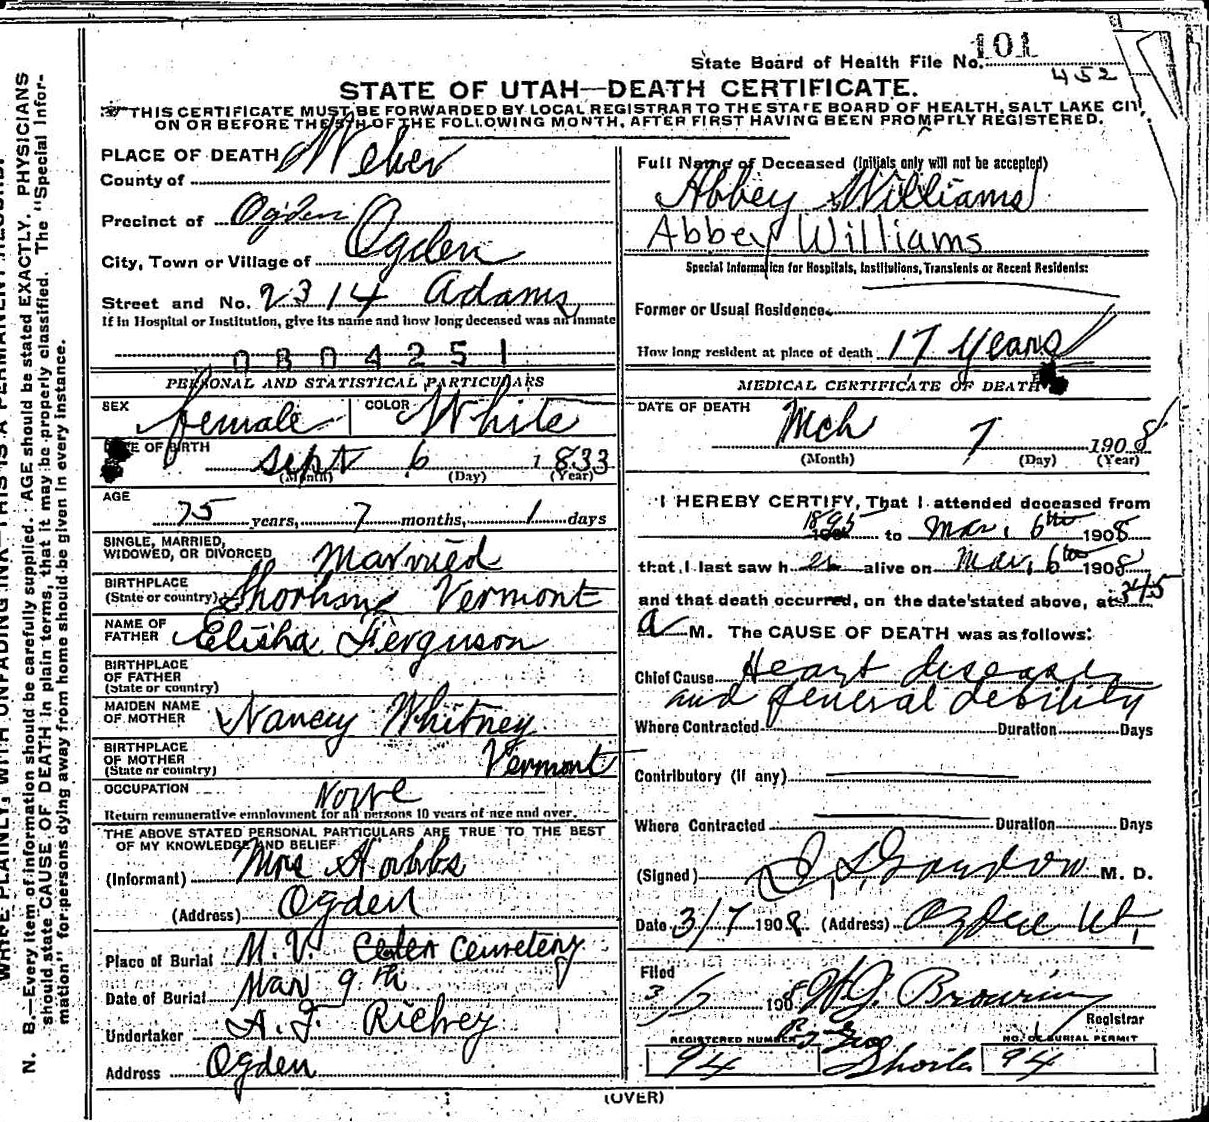 101
State Board of Health File No.
452
STATE OF UTAH—DEATH CERTIFICATE.
THIS CERTIFICATE MUST BE FORWARDED BY LOCAL REGISTRAR TO THE STATE BOARD OF HEALTH, SALT LAKE CITY,
ON OR BEFORE THE 5TH OF THE FOLLOWING MONTH, AFTER FIRST HAVING BEEN PROMPTLY REGISTERED.
PLACE OF DEATH
County of Weber
Precinct of Ogden
City, Town or Village of Ogden
Street and No. 2314 Adams
If in Hospital or Institution, give its name and how long deceased was an inmate
0804251
PERSONAL AND STATISTICAL PARTICULARS
SEX female COLOR White
DATE OF BIRTH
Sept 6 1833
(Month) (Day) (Year)
AGE
75 years, 7 months, 1 days
SINGLE, MARRIED,
WIDOWED, OR DIVORCED Married
BIRTHPLACE
(State or country) Vermont
NAME OF
FATHER Elisha Ferguson
BIRTHPLACE
OF FATHER
(State or country)
MAIDEN NAME
OF MOTHER Nancy Whitney
BIRTHPLACE
OF MOTHER
(State or country) Vermont
OCCUPATION None
Return remunerative employment for all persons 10 years of age and over.
THE ABOVE STATED PERSONAL PARTICULARS ARE TRUE TO THE BEST
OF MY KNOWLEDGE AND BELIEF
(Informant) Mrs Hobbs
(Address) Ogden
Place of Burial M.V. Cemetery
Date of Burial Mar 9th
Undertaker A.J. Richey
Address Ogden
Full Name of Deceased (Initials only will not be accepted)
Abbey Williams
Abbey Williams
Special Information for Hospitals, Institutions, Transients or Recent Residents:
Former or Usual Residence
How long resident at place of death 17 Years
MEDICAL CERTIFICATE OF DEATH
DATE OF DEATH
Mch 7 1908
(Month) (Day) (Year)
I HEREBY CERTIFY, That I attended deceased from
1895 to Mar. 6th 1908
that I last saw her alive on Mar. 6th 1908
and that death occurred, on the date stated above, at 345
a M. The CAUSE OF DEATH was as follows:
Chief Cause Heart disease
and general debility
Where Contracted Duration Days
Contributory (if any)
Where Contracted Duration Days
(Signed) M. D.
Date 3/7 1908 (Address) Ogden Ut,
Filed
3/7 1908
Registrar
REGISTERED NUMBER NO. OF BURIAL PERMIT
94 94
(OVER)
N. B.—Every item of information should be carefully supplied. AGE should be stated EXACTLY. PHYSICIANS
should state CAUSE OF DEATH in plain terms, that it may be properly classified. The "Special Infor-
mation" for persons dying away from home should be given in every instance.